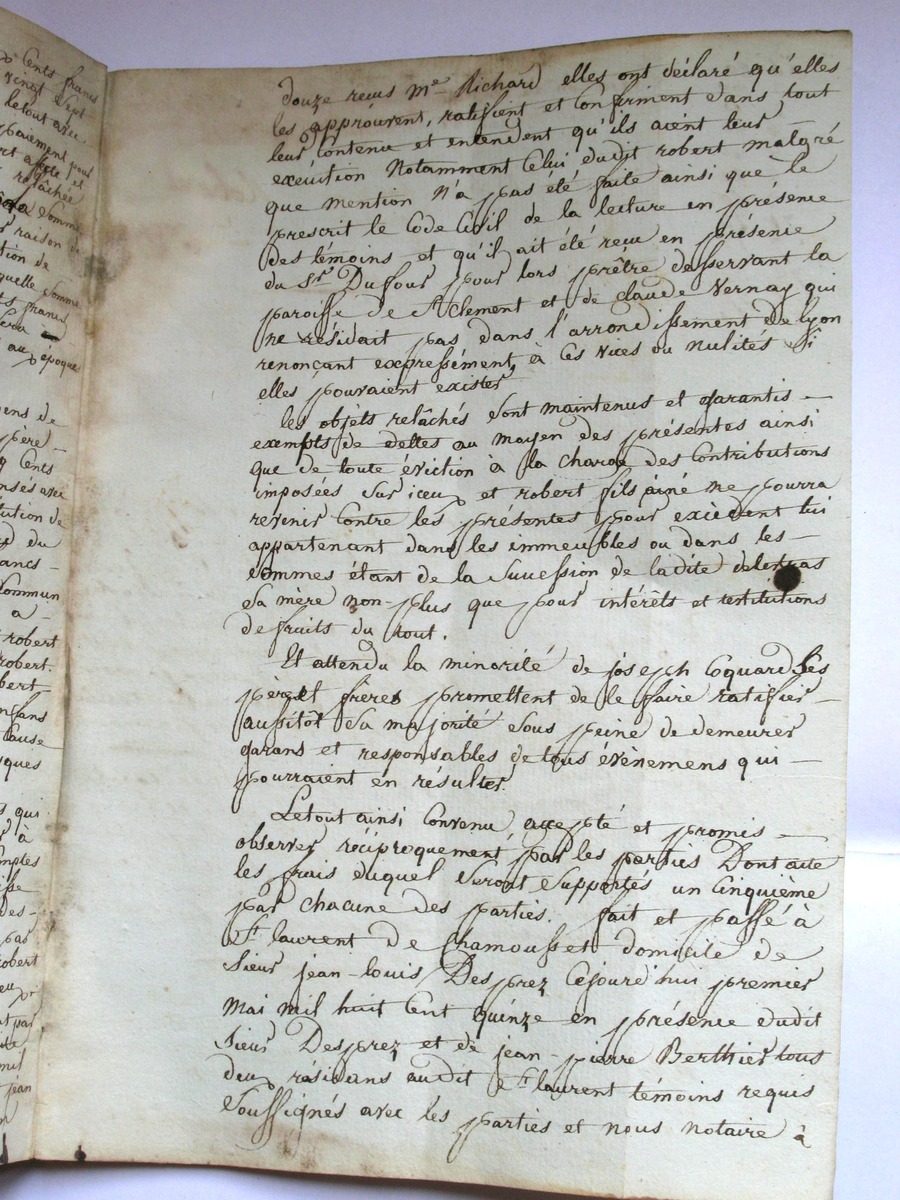 x Cents francs
vingt sept
le tout avec
paiement pour
relâchée
somme
raison de
tion de
quelle somme
ts francs
au époque
ens de
père
Cents
nsés avec
tution de
du
ancs -
Commun
a -
robert
robert.
bert -
nfans
Cause
sques
qui
à
mptes
des-
pas
robert
at par
mil
jean
douze reçus Me Richard elles ont déclaré qu'elles
les approuvent, ratifient et Confirment dans tout
leur contenu et entendent qu'ils aient leur
exécution Notamment Celui dudit robert malgré
que mention N'a pas été faite ainsi que le
prescrit le Code Civil de la lecture en présence
des témoins et qu'il ait été reçu en présence
du Sr. Dufour pour lors prêtre desservant la
paroisse de St Clement et de claude Vernay qui
ne résidait pas dans l'arrondissement de lyon
renonçant expressément à Ces vices ou nulités Si
elles pouvaient exister
les objets relâchés Sont maintenus et garantis -
exempts de dettes au moyen des présentes ainsi
que de toute éviction à la charge des Contributions
imposées Sur iceux et robert fils ainé ne pourra
revenir Contre les présentes pour excédent lui
appartenant dans les immeubles ou dans les -
Sommes étant de la Succession de ladite
Sa mère non-plus que pour intérêts et restitutions
de fruits du tout.
Et attendu la minorité de joseph Coquard Ses
père et frères promettent de le faire ratifier -
aussitôt Sa majorité Sous peine de demeurer
garans et responsables de tous évènemens qui -
pourraient en résulter.
Le tout ainsi Convenu accepté et promis -
observer réciproquement par les parties Dont acte
les frais duquel Seront Supportés un Cinquième
par chacune des parties. fait et passé à
St laurent de Chamousset domicile de
Sieur jean-louis Desprez Cejourd'hui premier
Mai mil huit Cent quinze en présence dudit
Sieur Desprez et de jean-pierre Berthier tous
deux résidans audit St laurent témoins requis
Soussignés avec les parties et nous notaire à